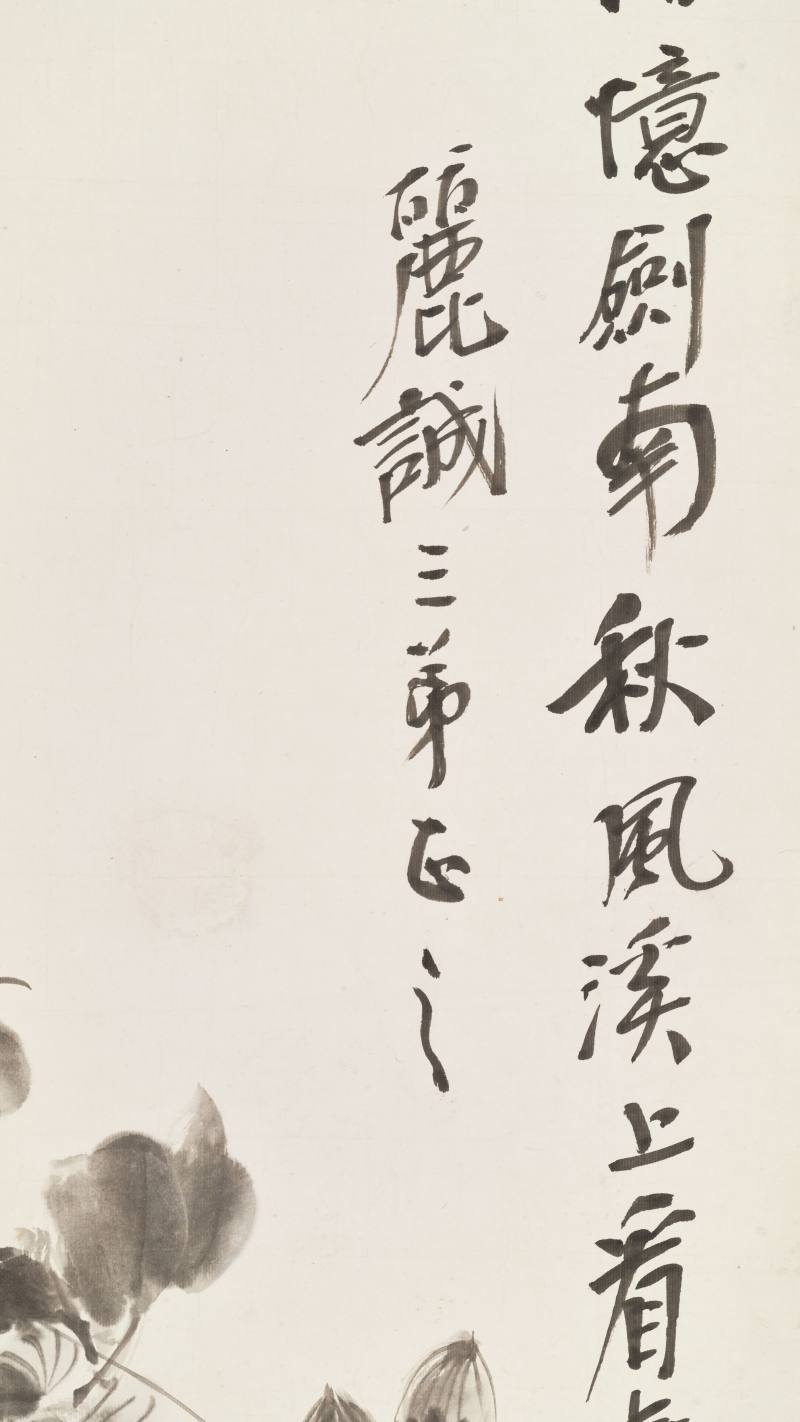 憶劍南秋風溪上看
麗誠三弟正之